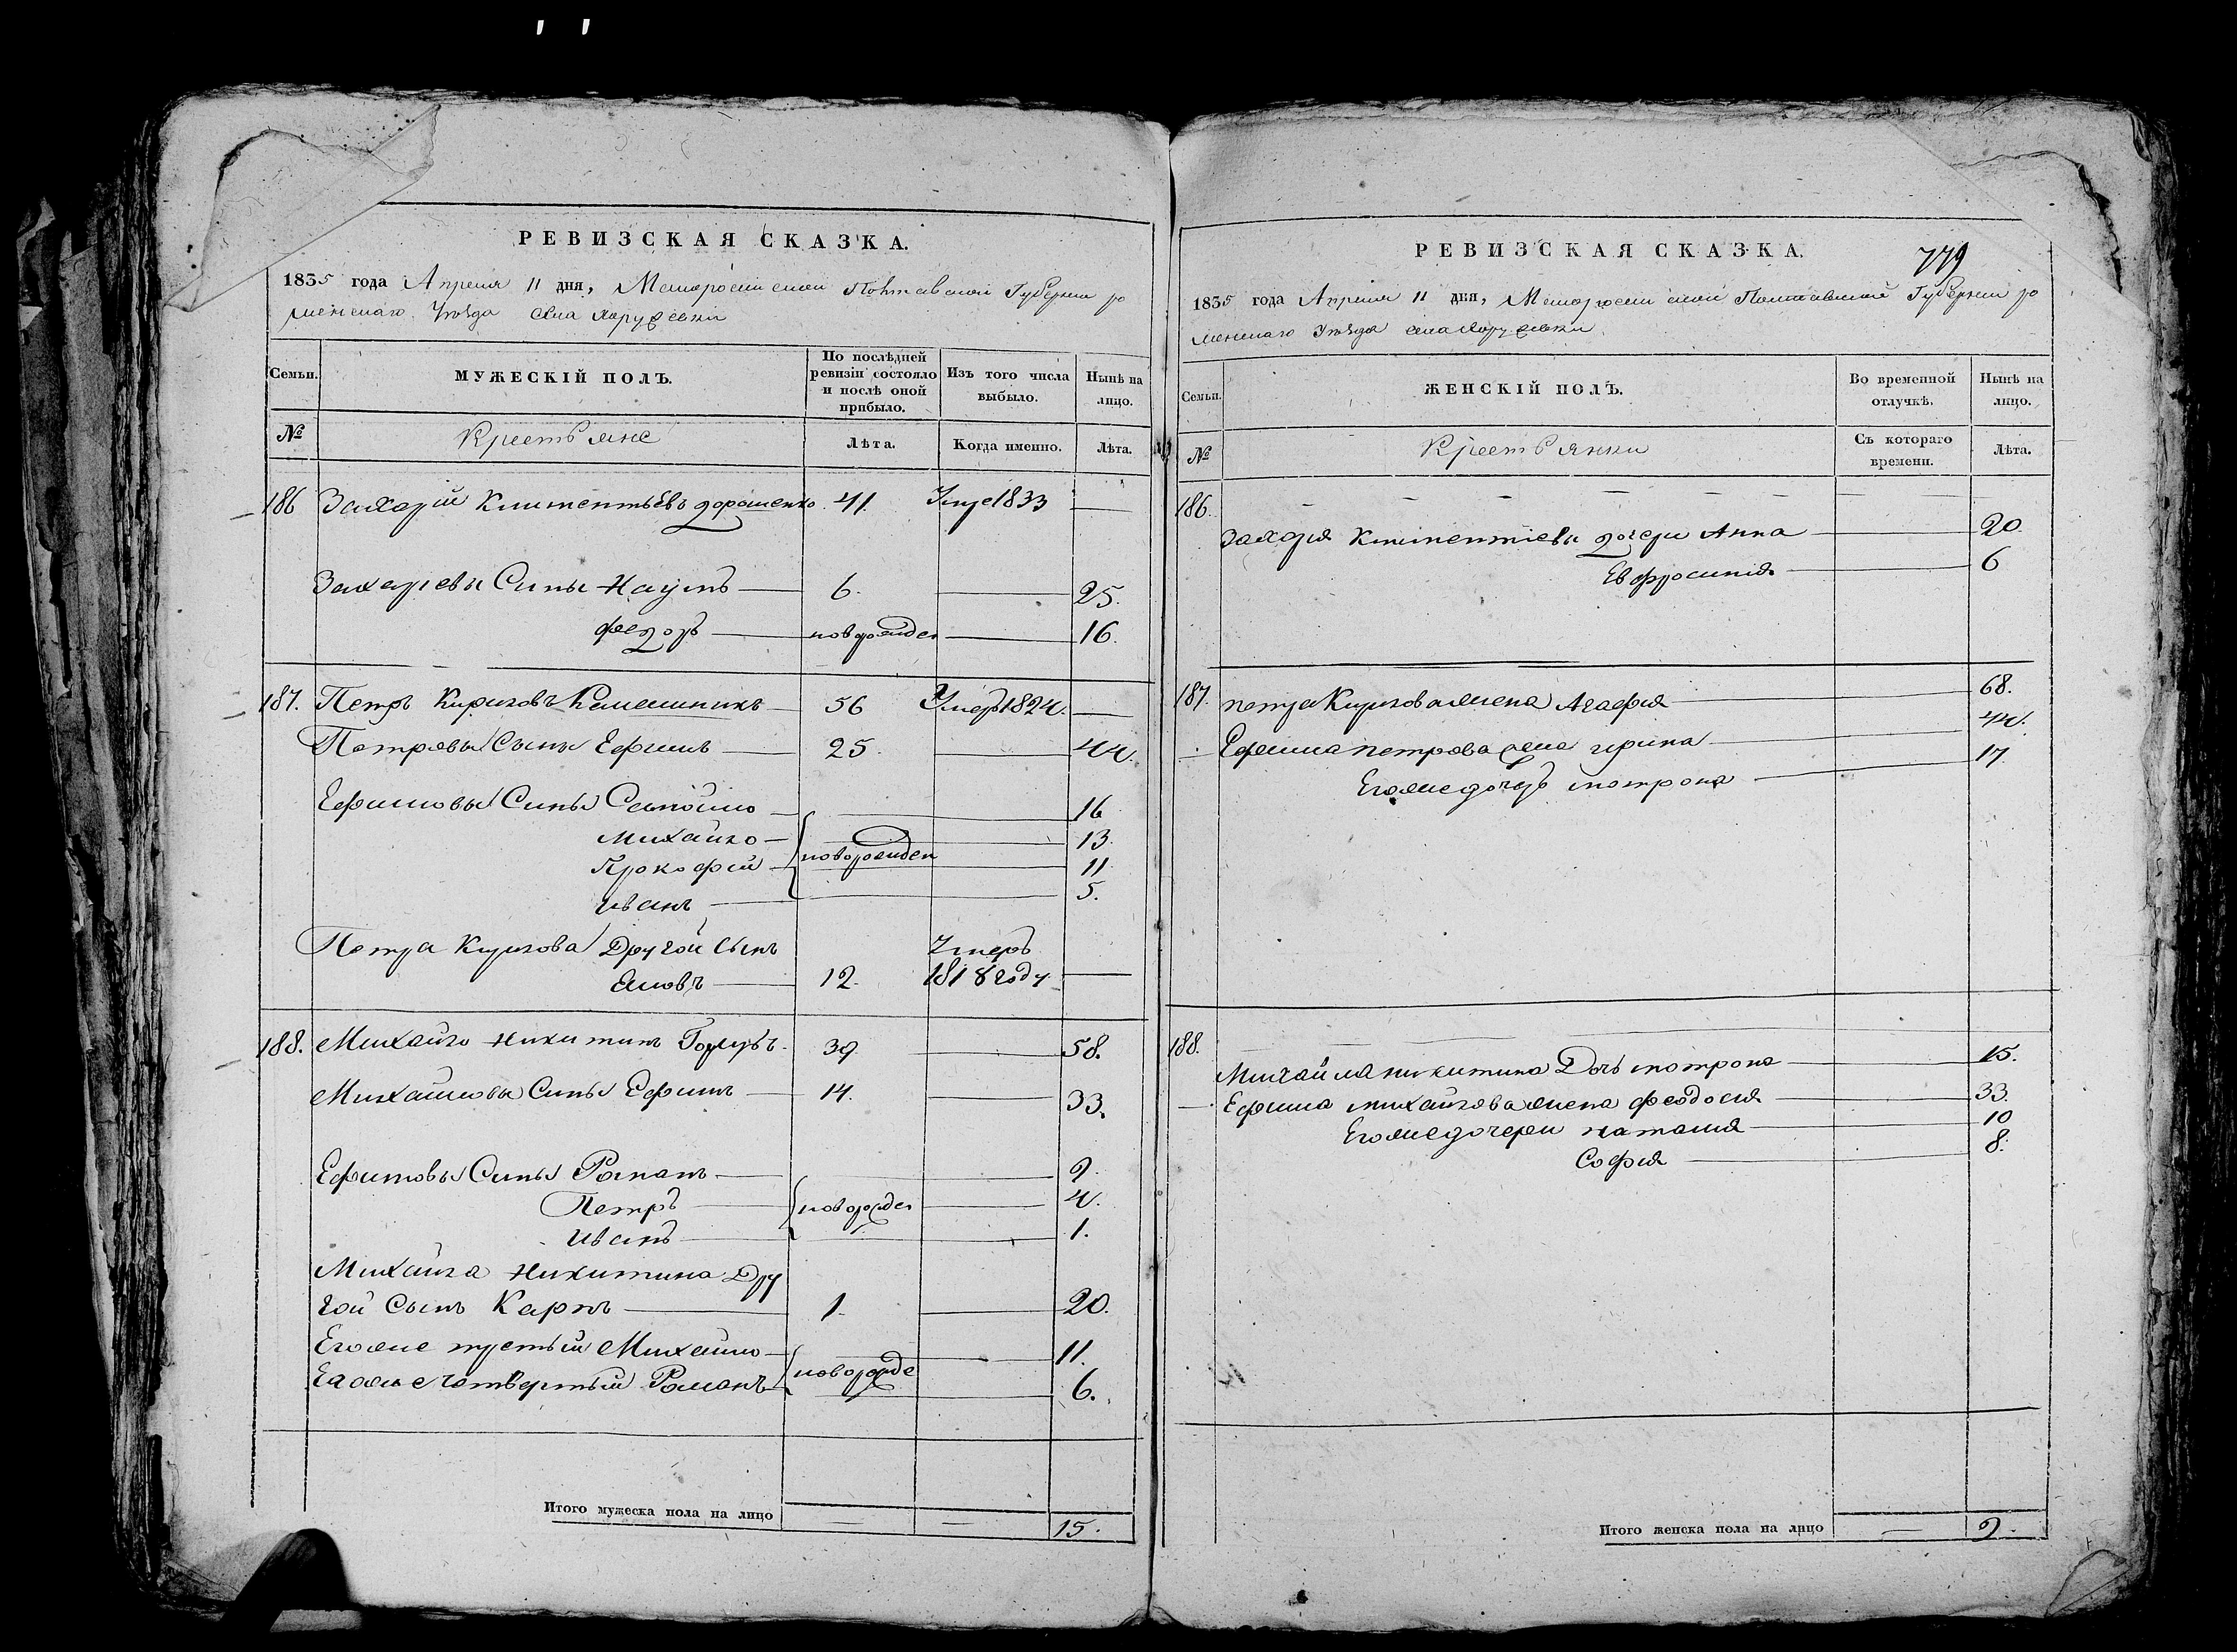 РЕВИЗСКАЯ СКАЗКА.
1835 года Апреля 11 дня, Малоросийской Полтавской Губернии ро
менскаго Уѣзда села Хоружевки
Семьи.
МУЖЕСКІЙ ПОЛЪ.
По послѣдней ревизіи состояло и послѣ оной прибыло.
Изъ того числа выбыло.
Нынѣ на лицо.
№
Крестьяне
Лѣта.
Когда именно.
Лѣта.
186 Захарій Климентьевъ дорошенко 41 Умре 1833 —
Захариевы Сины Наумъ — 6. — 25.
федоръ — новорожден — 16.
187. Петръ Кириловъ — 56 Умеръ 1824. —
Петровы Сыны Ефимъ — 25. — 44.
Ефимовы Сины Самойло — 16
Михайло — 13.
новорожден
Прокофий — 11
Иванъ — 5.
Петра Кирилова Другой Сынъ
Яковъ — 12. Умеръ 1818 году —
188. Михайло Никитинъ Голубъ. 39. — 58.
Михайловы Сины Ефимъ — 14. — 33.
Ефимовы Сины Романъ — 9.
Петръ — новорожден — 4.
Иванъ — 1.
Михайла Никитина Дру
гой Сынъ Карпъ — 1. — 20.
Егоже третий Михайло — 11.
новорожде
Егоже четвертый Романъ — 6.
Итого мужеска пола на лицо — — 15.
РЕВИЗСКАЯ СКАЗКА.
779
1835 года Апреля 11 дня, Малоросийской Полтавской Губернии ро
менскаго Уѣзда села Хоружевки
Семьи.
ЖЕНСКІЙ ПОЛЪ.
Во временной отлучкѣ.
Нынѣ на лицо.
№
Крестьянки
Съ котораго времени.
Лѣта.
186.
Захария Климентіева дочери Анна — 20.
Евфросинія — 6
187. петра Кирилова жена Агафия — 68.
Ефима петрова жена ирина — 44.
Егоже дочерь мотрона — 17.
188.
Михайла никитина Дочь мотрона — 15.
Ефима михайлова жена феодосия — 33.
Егоже дочери наталия — 10
София — 8.
Итого женска пола на лицо — 9.